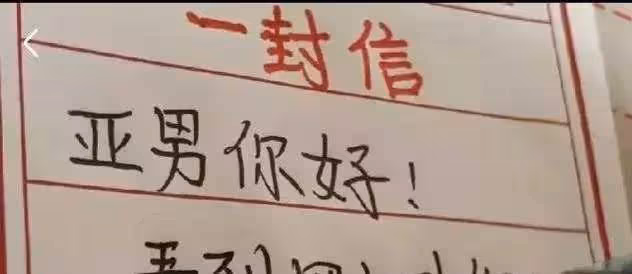 一封信
亚男你好！